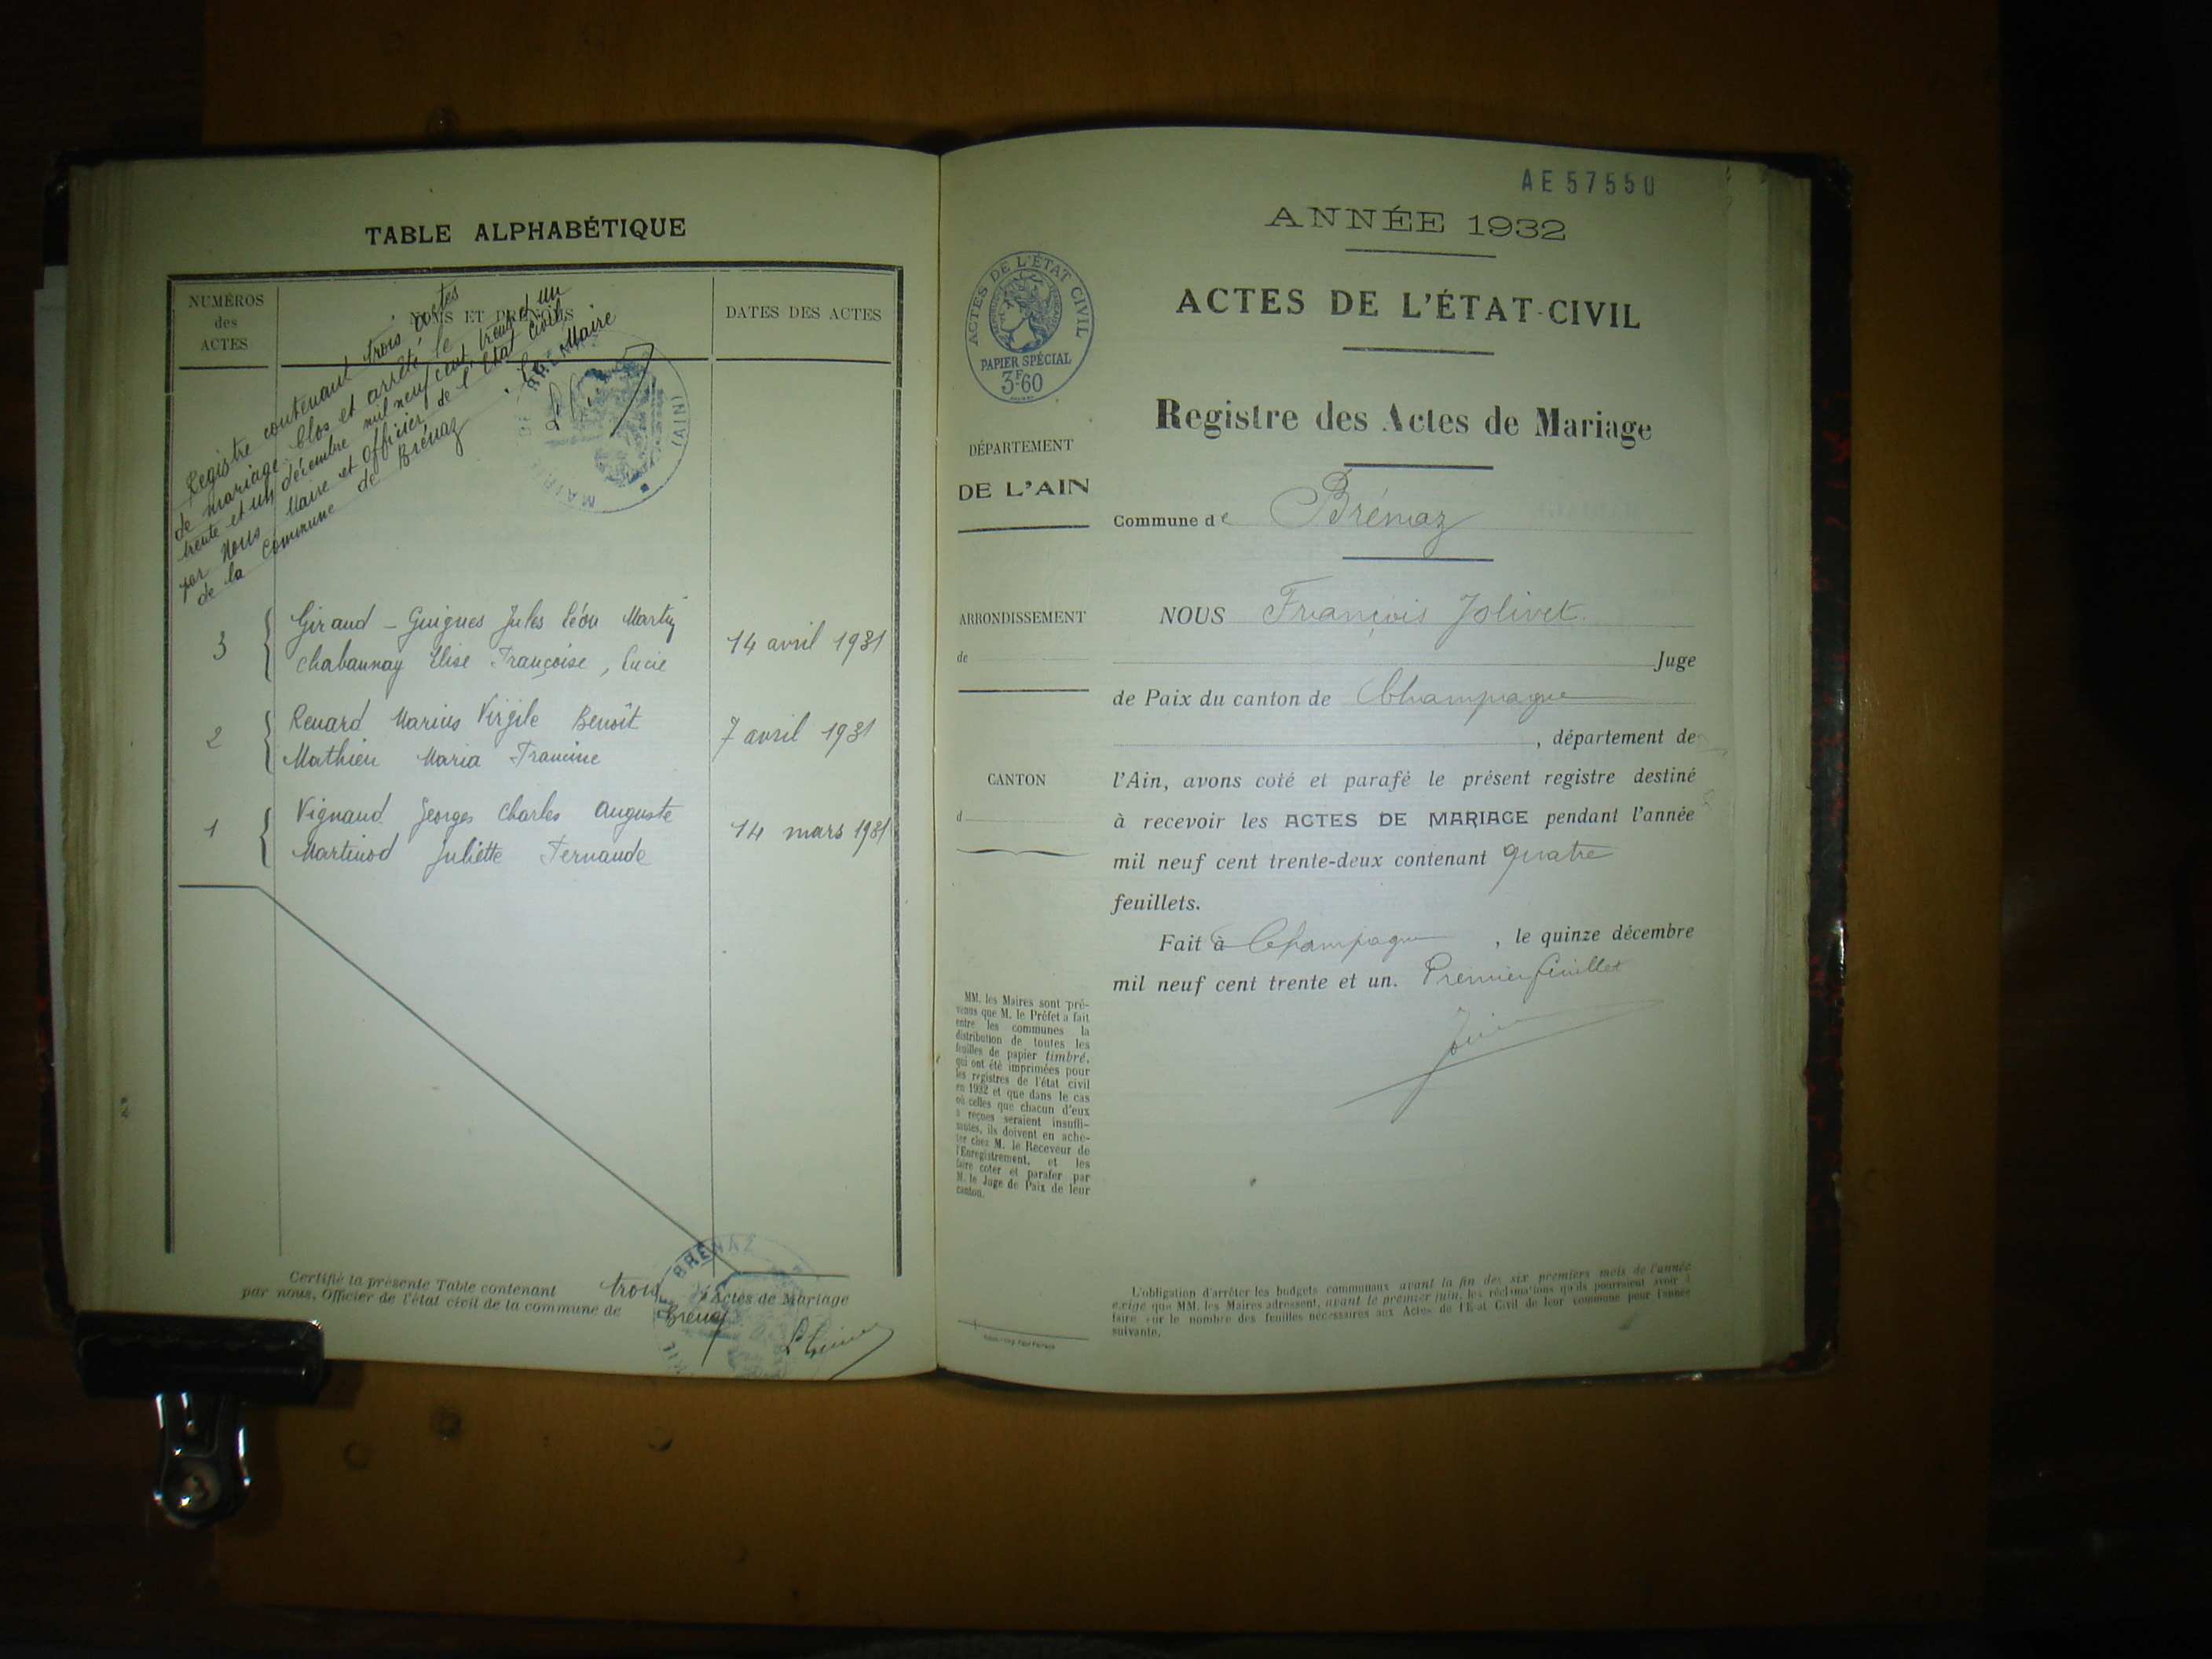 TABLE ALPHABÉTIQUE
NUMÉROS
des
ACTES
NOMS ET PRÉNOMS
DATES DES ACTES
Registre contenant trois actes
de mariage. Clos et arrêté le
trente et un décembre mil neuf cent trente et un
par Nous Maire et Officier de l'Etat Civil
de la Commune de Brénaz
Le Maire
MAIRIE DE BRÉNAZ
(AIN)
3
Giraud - Guigues Jules Léon Martin
14 avril 1931
Chabannay Elise Françoise, Lucie
2
Renard Marius Virgile Benoît
7 avril 1931
Mathieu Maria Francine
1
Vignaud Georges Charles Auguste
14 mars 1931
Martinod Juliette Fernande
Certifié la présente Table contenant trois Actes de Mariage
par nous, Officier de l'état civil de la commune de Brénaz
BRÉNAZ
AE 57550
ANNÉE 1932
ACTES DE L'ÉTAT CIVIL
PAPIER SPÉCIAL
3F60
ACTES DE L'ÉTAT-CIVIL
Registre des Actes de Mariage
DÉPARTEMENT
DE L'AIN
Commune de Brénaz
ARRONDISSEMENT
de
NOUS François Jolivet
Juge
de Paix du canton de Champagne
, département de
CANTON
d
l'Ain, avons coté et parafé le présent registre destiné
à recevoir les ACTES DE MARIAGE pendant l'année
mil neuf cent trente-deux contenant quatre
feuillets.
Fait à Champagne, le quinze décembre
mil neuf cent trente et un. Premier feuillet
MM. les Maires sont pré-
venus que M. le Préfet a fait
entre les communes la
distribution de toutes les
feuilles de papier timbré,
qui ont été imprimées pour
les registres de l'état civil
en 1932 et que dans le cas
où celles que chacun d'eux
a reçues seraient insuffi-
santes, ils doivent en ache-
ter chez M. le Receveur de
l'Enregistrement, et les
faire coter et parafer par
M. le Juge de Paix de leur
canton.
L'obligation d'arrêter les budgets communaux avant la fin des six premiers mois de l'année
exige que MM. les Maires adressent, avant le premier juin, les réclamations qu'ils pourraient avoir à
faire sur le nombre des feuilles nécessaires aux Actes de l'Etat Civil de leur commune pour l'année
suivante.